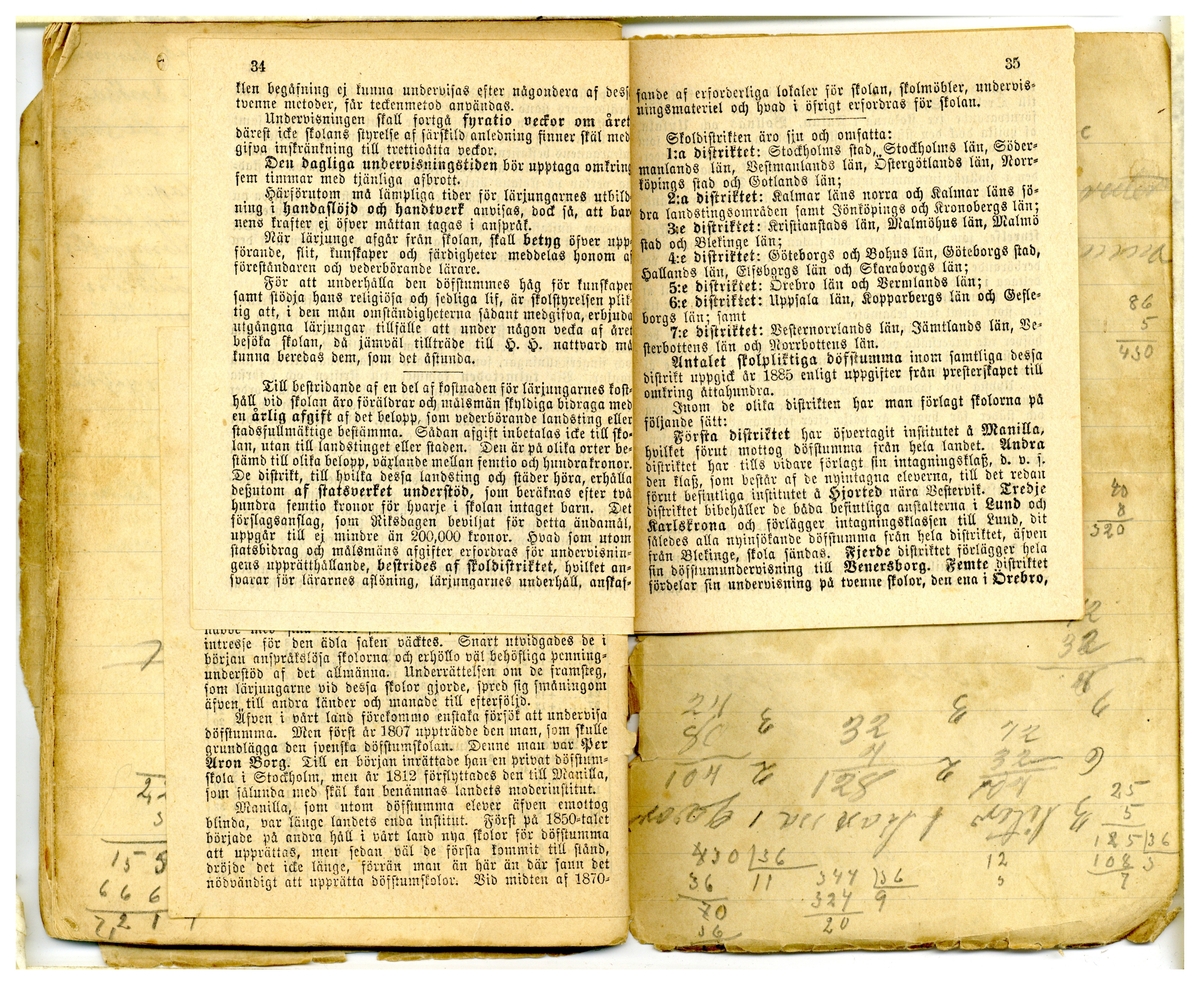 34
klen begåfning ej kunna undervisas efter någondera af dess
tvenne metoder, får teckenmetod användas.
Undervisningen skall fortgå fyratio veckor om året
därest icke skolans styrelse af särskild anledning finner skäl med
gifva inskränkning till trettioåtta veckor.
Den dagliga undervisningstiden bör upptaga omkring
fem timmar med tjänliga afbrott.
Härförutom må lämpliga tider för lärjungarnes utbild
ning i handaslöjd och handtverk anvisas, dock så, att bar
nens krafter ej öfver måttan tagas i anspråk.
När lärjunge afgår från skolan, skall betyg öfver upp
förande, flit, kunskaper och färdigheter meddelas honom af
föreståndaren och vederbörande lärare.
För att underhålla den döfstummes håg för kunskaper
samt stödja hans religiösa och sedliga lif, är skolstyrelsen plik
tig att, i den mån omständigheterna sådant medgifva, erbjuda
utgångna lärjungar tillfälle att under någon vecka af året
besöka skolan, då jämväl tillträde till H. H. nattvard må
kunna beredas dem, som det åstunda.
Till bestridande af en del af kostnaden för lärjungarnes kost-
håll vid skolan äro föräldrar och målsmän skyldiga bidraga med
en årlig afgift af det belopp, som vederbörande landsting eller
stadsfullmäktige bestämma. Sådan afgift inbetalas icke till sko-
lan, utan till landstinget eller staden. Den är på olika orter be-
stämd till olika belopp, växlande mellan femtio och hundra kronor.
De distrikt, till hvilka dessa landsting och städer höra, erhålla
dessutom af statsverket understöd, som beräknas efter två
hundra femtio kronor för hvarje i skolan intaget barn. Det
förslagsanslag, som Riksdagen beviljat för detta ändamål,
uppgår till ej mindre än 200,000 kronor. Hvad som utom
statsbidrag och målsmäns afgifter erfordras för undervisnin-
gens upprätthållande, bestrides af skoldistriktet, hvilket an-
svarar för lärarnes aflöning, lärjungarnes underhåll, anskaf-
intresse för den ädla saken väcktes. Snart utvidgades de i
början anspråkslösa skolorna och erhöllo väl behöfliga penning-
understöd af det allmänna. Underrättelsen om de framsteg,
som lärjungarne vid dessa skolor gjorde, spred sig småningom
äfven till andra länder och manade till efterföljd.
Äfven i vårt land förekommo enstaka försök att undervisa
döfstumma. Men först år 1807 uppträdde den man, som skulle
grundlägga den svenska döfstumskolan. Denne man var Per
Aron Borg. Till en början inrättade han en privat döfstum-
skola i Stockholm, men år 1812 förflyttades den till Manilla,
som sålunda med skäl kan benämnas landets moderinstitut.
Manilla, som utom döfstumma elever äfven emottog
blinda, var länge landets enda institut. Först på 1850-talet
började på andra håll i vårt land nya skolor för döfstumma
att upprättas, men sedan väl de första kommit till stånd,
dröjde det icke länge, förrän man än här än där fann det
nödvändigt att upprätta döfstumskolor. Vid midten af 1870-
35
fande af erforderliga lokaler för skolan, skolmöbler, undervis-
ningsmateriel och hvad i öfrigt erfordras för skolan.
Skoldistrikten äro sju och omfatta:
1:a distriktet: Stockholms stad, Stockholms län, Söder-
manlands län, Vestmanlands län, Östergötlands län, Norr-
köpings stad och Gotlands län;
2:a distriktet: Kalmar läns norra och Kalmar läns sö-
dra landstingsområden samt Jönköpings och Kronobergs län;
3:e distriktet: Kristianstads län, Malmöhus län, Malmö
stad och Blekinge län;
4:e distriktet: Göteborgs och Bohus län, Göteborgs stad,
Hallands län, Elfsborgs län och Skaraborgs län;
5:e distriktet: Örebro län och Vermlands län;
6:e distriktet: Uppsala län, Kopparbergs län och Gefle-
borgs län; samt
7:e distriktet: Vesternorrlands län, Jämtlands län, Ve-
sterbottens län och Norrbottens län.
Antalet skolpliktiga döfstumma inom samtliga dessa
distrikt uppgick år 1885 enligt uppgifter från presterskapet till
omkring åttahundra.
Inom de olika distrikten har man förlagt skolorna på
följande sätt:
Första distriktet har öfvertagit institutet å Manilla,
hvilket förut mottog döfstumma från hela landet. Andra
distriktet har tills vidare förlagt sin intagningsklass, d. v. s.
den klass, som består af de nyintagna eleverna, till det redan
förut befintliga institutet å Hjorted nära Vestervik. Tredje
distriktet bibehåller de båda befintliga anstalterna i Lund och
Karlskrona och förlägger intagningsklassen till Lund, dit
således alla nyinsökande döfstumma från hela distriktet, äfven
från Blekinge, skola sändas. Fjerde distriktet förlägger hela
sin döfstumundervisning till Venersborg. Femte distriktet
fördelar sin undervisning på tvenne skolor, den ena i Örebro,
86
5
430
8
320
32
32
25
5
125 36
108 3
36
11
36
70
36
344 36
324 9
20
12
3
15
666